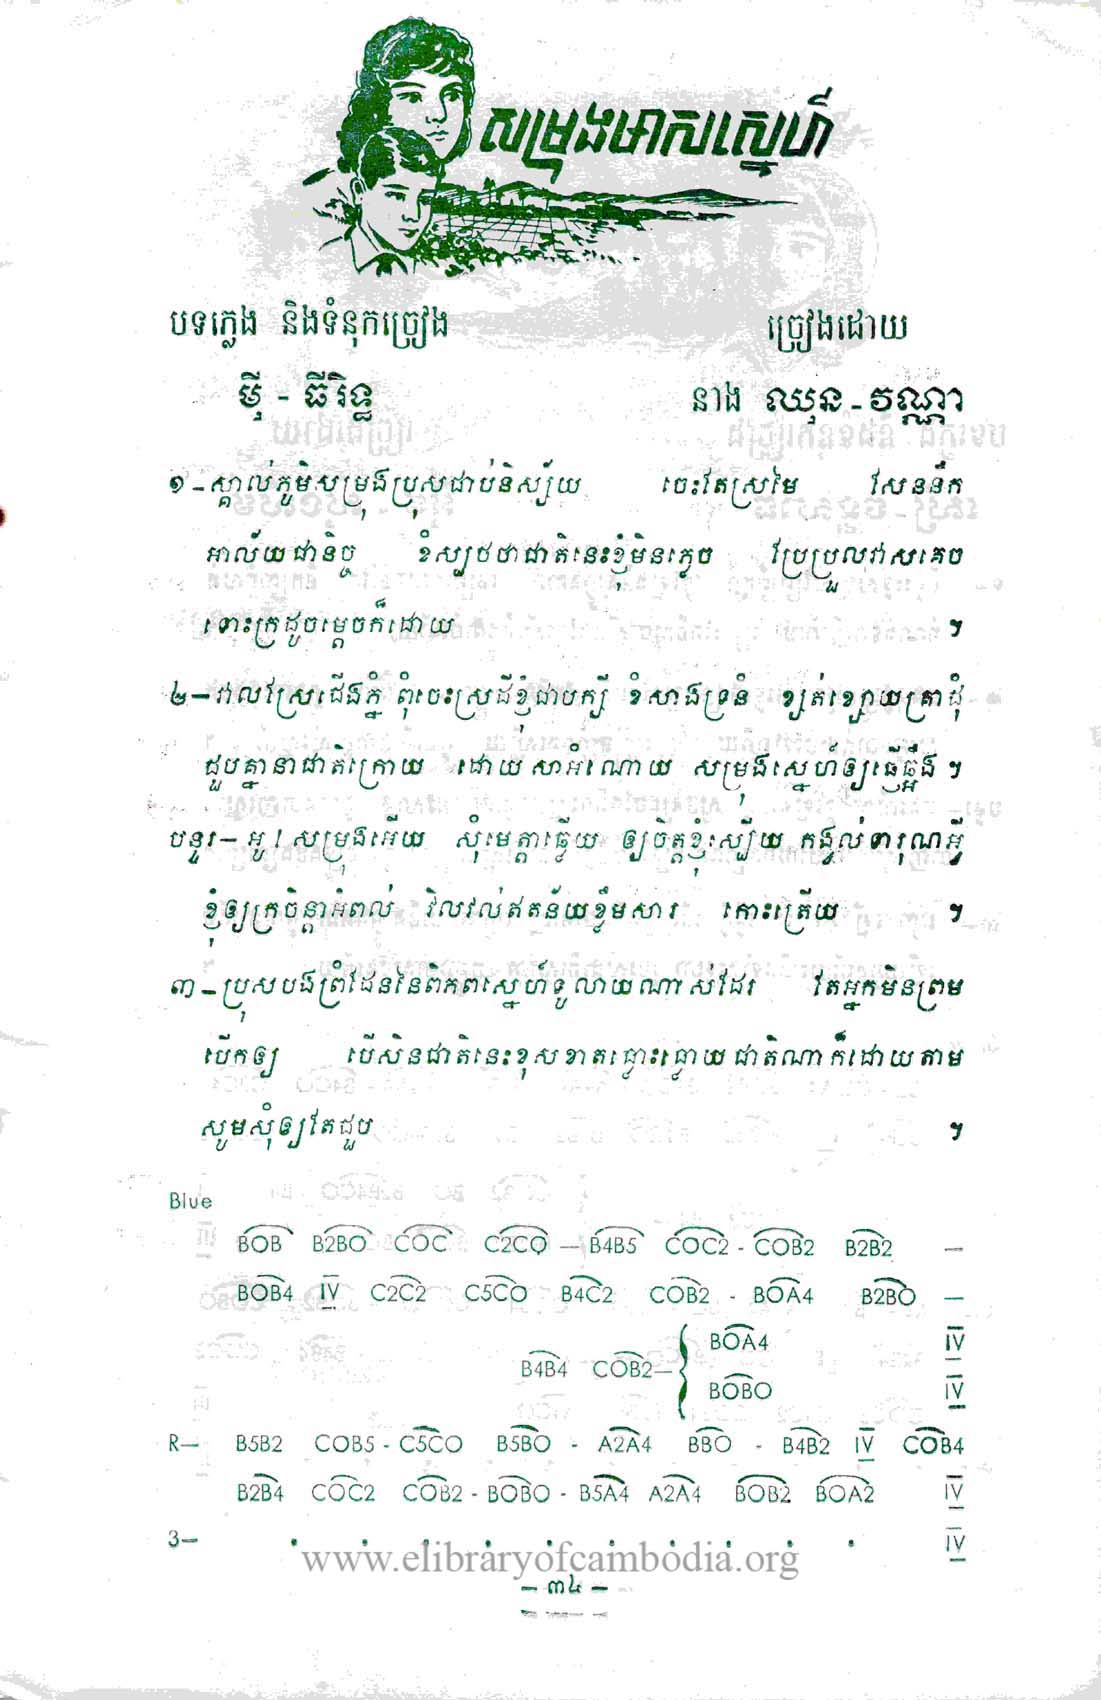 សម្រុងមាសស្នេហ៍
បទភ្លេង និងទំនុកច្រៀង ច្រៀងដោយ
ម៉ី - ធីរិទ្ធ នាង ឈុន - វណ្ណា
១ - ស្គាល់ភូមិសម្រុងប្រុសជាប់និស្ស័យ ចេះតែស្រមៃ សែននឹក
អាល័យជានិច្ច ខំស្បថថាជាតិនេះខ្ញុំមិនភ្លេច ប្រែប្រួលវាសគេច
ទោះក្រដូចម្ដេចក៏ដោយ ។
២ - វាលស្រែជើងភ្នំ ពុំចេះស្រដីខ្ញុំជាបក្សី ខំសាងទ្រនំ ខ្សត់ខ្សោយត្រាដុំ
ជួបគ្នានាជាតិក្រោយ ដោយសារអំណោយ សម្រុងស្នេហ៍ឲ្យធ្វើឆ្អឹង ។
បន្ទរ - អូ ! សម្រុងអើយ សុំមេត្តាឆ្លើយ ឲ្យចិត្តខ្ញុំស្បើយ កង្វល់ទារុណអ្វី
ខ្ញុំឲ្យក្រចិន្តាអំពល់ វិលវល់ឥតន័យខ្លឹមសារ កោះត្រើយ ។
៣ - ប្រុសបងព្រំដែននៃពិភពស្នេហ៍ទូលាយណាស់ដែរ តែអ្នកមិនព្រម
បើកឲ្យ បើសិនជាតិនេះខុសខាតធ្លោះធ្លោយជាតិណាក៏ដោយតាម
សូមសុំឲ្យតែជួប ។
Blue
BOB B2BO COC C2CO – B4B5 COC2 - COB2 B2B2 –
BOB4 IV C2C2 C5CO B4C2 COB2 - BOA4 B2BO –
BOA4 IV
B4B4 COB2 – {
BOBO IV
R– B5B2 COB5 - C5CO B5BO - A2A4 BBO - B4B2 IV COB4
B2B4 COC2 COB2 - BOBO - B5A4 A2A4 BOB2 BOA2 IV
3– . . . . . . . . . . IV
www.elibraryofcambodia.org
– ៣៤ –